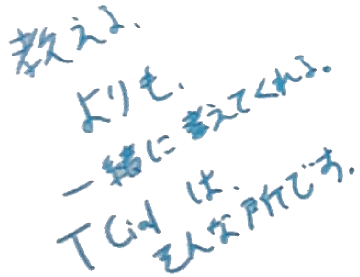 教える、
よりも、
一緒に考えてくれる。
TCidは、
そんな所です。